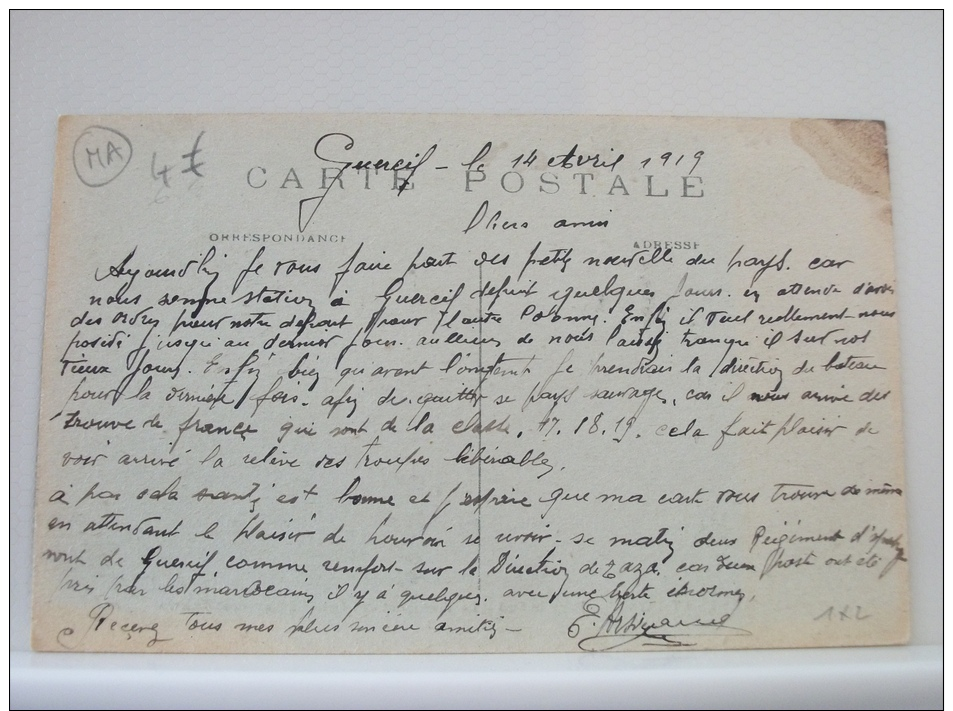 MA
4 €
Guercif - le 14 Avril 1919
CARTE POSTALE
Chers amis
ORRESPONDANCE
ADRESSE
Aujourd'hui je vous faire part des petits nouvelle du pays. car
nous somme station à Guercif depuit quelques jours. en attende d'avoir
des ordres pour notre depart pour l'autre Colonne. Enfin il veul reellement nous
jusqu'au dernier jour. au lieu de nous laisser tranquil sur nos
vieux jours. Enfin bien qu'avant longtemt je prendrais la direction du bateau
pour la dernière fois. afin de quitter se pays sauvage, car il nous arrive des
trouve de france qui sont de la classe. 17. 18. 19. cela fait plaisir de
voir arrivé la relève des troupes libérables,
à pas sela santé est bonne et j'espère que ma carte vous trouve de même
en attendant le plaisir de pouvoir se revoir - se matin deux Régiment
vont de Guercif comme renfort sur la Direction de Taza. car deux poste ont été
pris par les marocains il y a quelques. avec une perte énormes,
Reçevez tous mes plus sincère amitiés -
E.
1x2